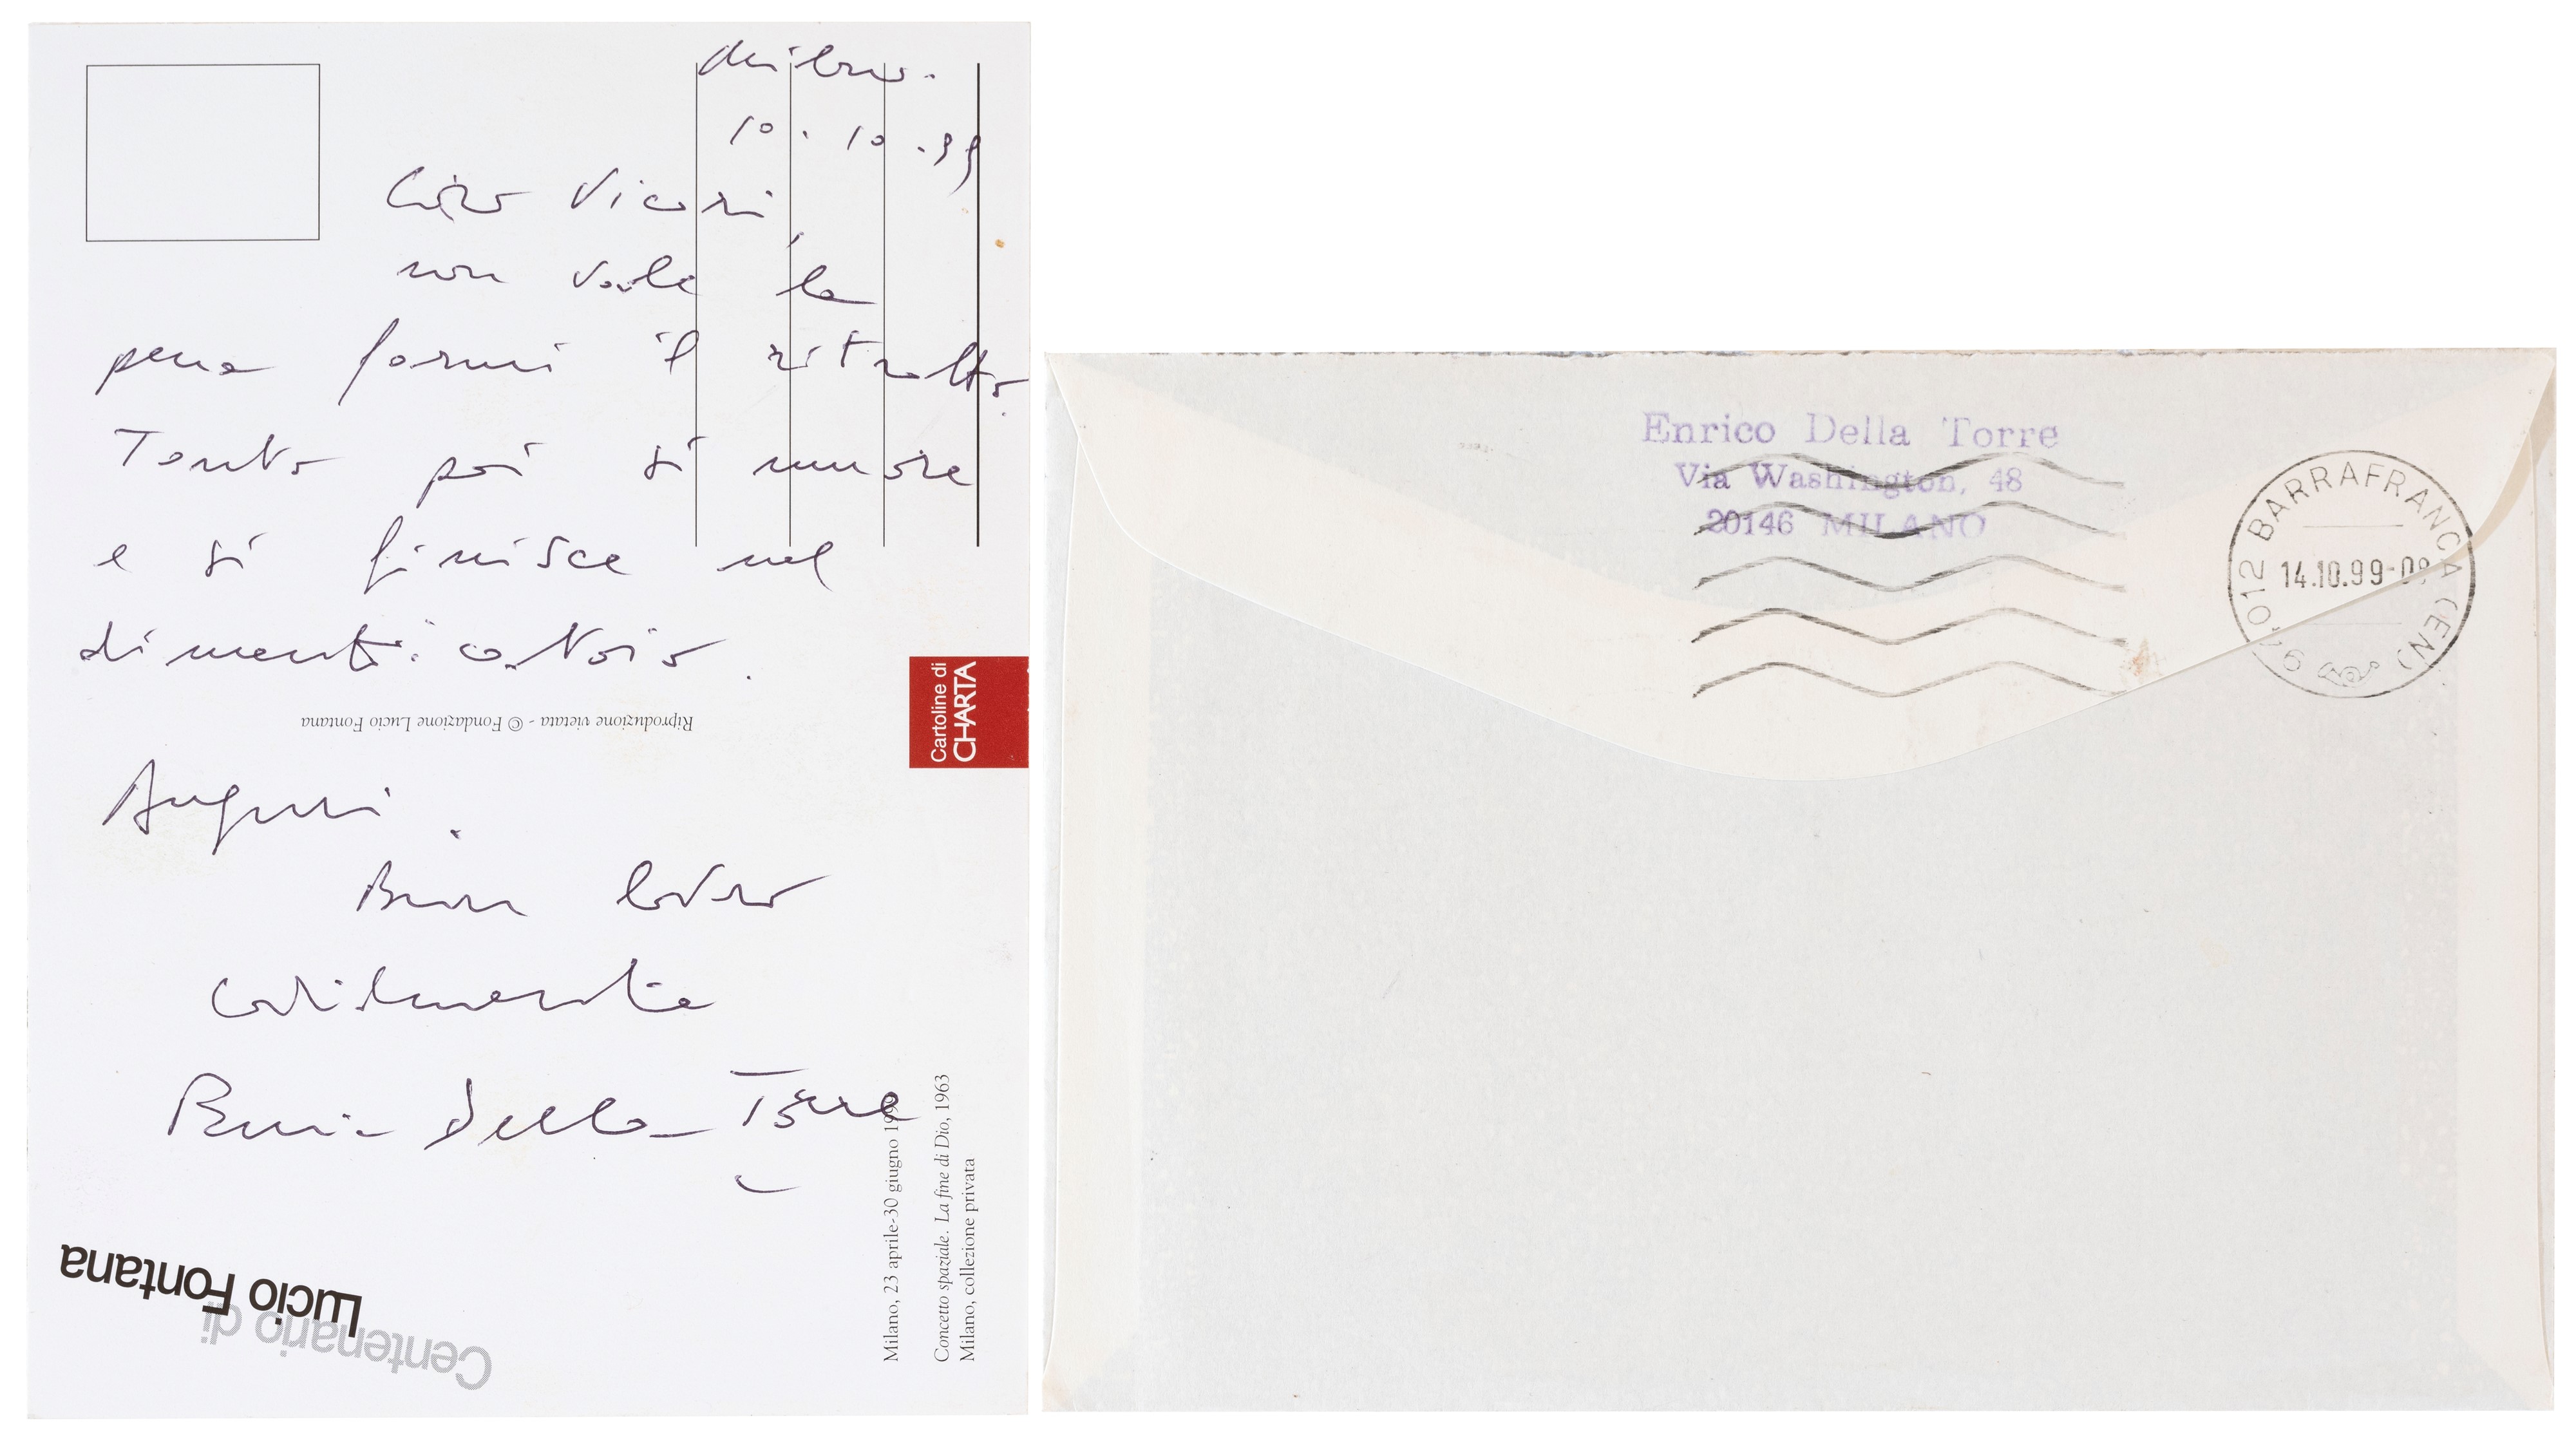 Milano.
10.10.99
Caro Vicari,
non vale la
pena farmi il ritratto.
Tanto poi si muore
e si finisce nel
dimenticatoio.
Riproduzione vietata - © Fondazione Lucio Fontana
Cartoline di
CHARTA
Auguri.
Buon lavoro
cordialmente
Enrico Della Torre
Milano, 23 aprile-30 giugno
Concetto spaziale. La fine di Dio, 1963
Milano, collezione privata
Centenario di
Lucio Fontana
Enrico Della Torre
Via Washington, 48
20146 MILANO
94012 BARRAFRANCA (EN)
14.10.99-